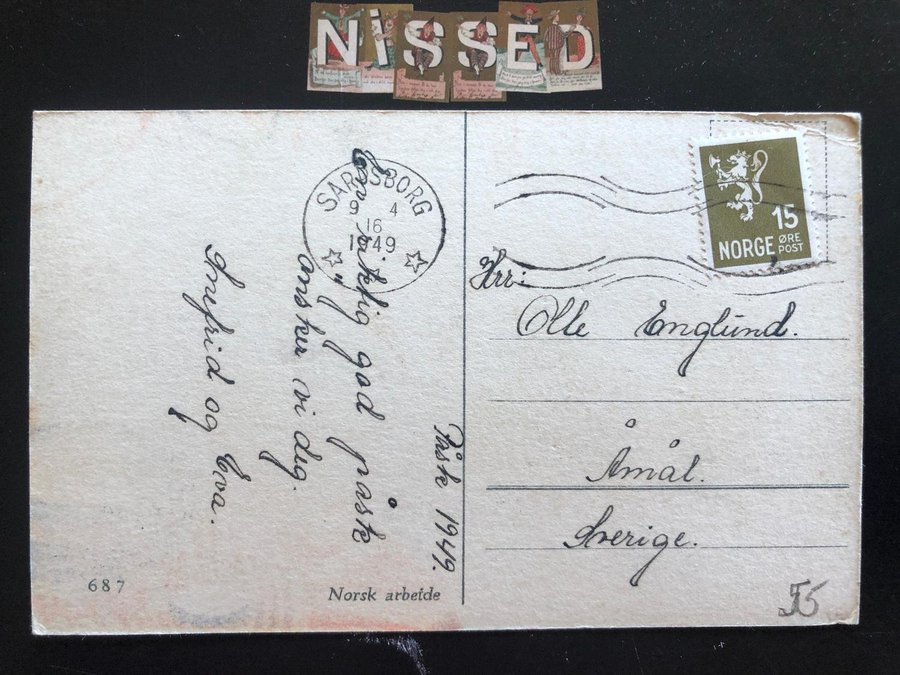 NISSED
SARPSBORG
9 4
16
1949
15
NORGE ØRE
POST
Påsk 1949.
En riktig god påsk
önsker vi dig.
Snefrid og Eva.
Hrr:
Olle Englund.
Åmål.
Sverige.
687
Norsk arbeide
55